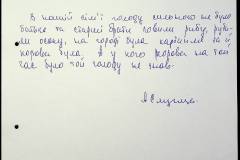 В нашій сім'ї голоду сильного не було
батько та старші брати ловили рибу, руба-
ли осоку, на городі була картопля та й
корова була. А у кого корова на той
час було той голоду не знав.